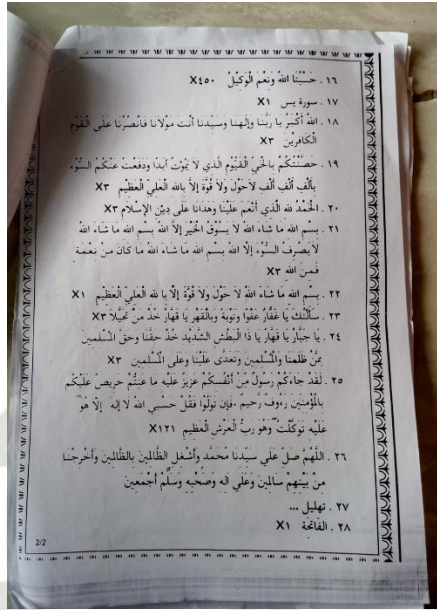 ١٦ . حَسْبُنَا اللهُ وَنِعْمَ الْوَكِيْلُ X٤٥٠
١٧ . سورة يس X١
١٨ . اللهُ أَكْبَرُ يَا رَبَّنَا وَإِلَهَنَا وَسَيِّدَنَا أَنْتَ مَوْلَانَا فَانْصُرْنَا عَلَى الْقَوْمِ
الْكَافِرِيْنَ X٣
١٩ . حَصَّنْتُكُمْ بِالْحَيِّ الْقَيُّوْمِ الَّذِي لَا يَمُوْتُ أَبَدًا وَدَفَعْتُ عَنْكُمُ السُّوْءَ
بِأَلْفِ أَلْفِ أَلْفِ لَاحَوْلَ وَلَا قُوَّةَ إِلَّا بِاللهِ الْعَلِيِّ الْعَظِيْمِ X٣
٢٠ . الْحَمْدُ للهِ الَّذِي أَنْعَمَ عَلَيْنَا وَهَدَانَا عَلَى دِيْنِ الْإِسْلَامِ X٣
٢١ . بِسْمِ اللهِ مَا شَاءَ اللهُ لَا يَسُوْقُ الْخَيْرَ إِلَّا اللهُ بِسْمِ اللهِ مَا شَاءَ اللهُ
لَا يَصْرِفُ السُّوْءَ إِلَّا اللهُ بِسْمِ اللهِ مَا شَاءَ اللهُ مَا كَانَ مِنْ نِعْمَةٍ
فَمِنَ اللهِ X٣
٢٢ . بِسْمِ اللهِ مَا شَاءَ اللهُ لَا حَوْلَ وَلَا قُوَّةَ إِلَّا بِا للهِ الْعَلِيِّ الْعَظِيْمِ X١
٢٣ . سَأَلْتُكَ يَا غَفَّارُ عَفْوًا وَتَوْبَةً وَبِالْقَهْرِ يَا قَهَّارُ خُذْ مَنْ تَحَيَّلَا X٣
٢٤ . يَا جَبَّارُ يَا قَهَّارُ يَا ذَا الْبَطْشِ الشَّدِيْدِ خُذْ حَقَّنَا وَحَقَّ الْمُسْلِمِيْنَ
مِمَّنْ ظَلَمَنَا وَالْمُسْلِمِيْنَ وَتَعَدَّى عَلَيْنَا وَعَلَى الْمُسْلِمِيْنَ X٣
٢٥ . لَقَدْ جَاءَكُمْ رَسُوْلٌ مِنْ أَنْفُسِكُمْ عَزِيْزٌ عَلَيْهِ مَا عَنِتُّمْ حَرِيْصٌ عَلَيْكُمْ
بِالْمُؤْمِنِيْنَ رَءُوْفٌ رَحِيْمٌ ،فَإِنْ تَوَلَّوْا فَقُلْ حَسْبِيَ اللهُ لَا إِلَهَ إِلَّا هُوَ
عَلَيْهِ تَوَكَّلْتُ وَهُوَ رَبُّ الْعَرْشِ الْعَظِيْمِ X١٢١
٢٦ . اللَّهُمَّ صَلِّ عَلَى سَيِّدِنَا مُحَمَّدٍ وَأَشْغِلِ الظَّالِمِيْنَ بِالظَّالِمِيْنَ وَأَخْرِجْنَا
مِنْ بَيْنِهِمْ سَالِمِيْنَ وَعَلَى الِهِ وَصَحْبِهِ وَسَلِّمْ أَجْمَعِيْنَ
٢٧ . تهليل ...
٢٨ . الْفَاتِحَةِ X١
2/2